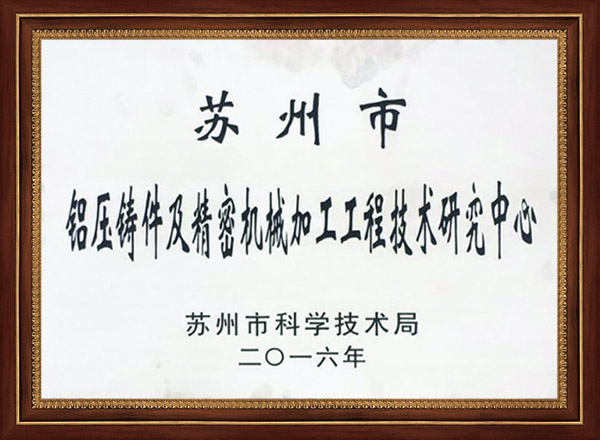 苏州市
铝压铸件及精密机械加工工程技术研究中心
苏州市科学技术局
二〇一六年